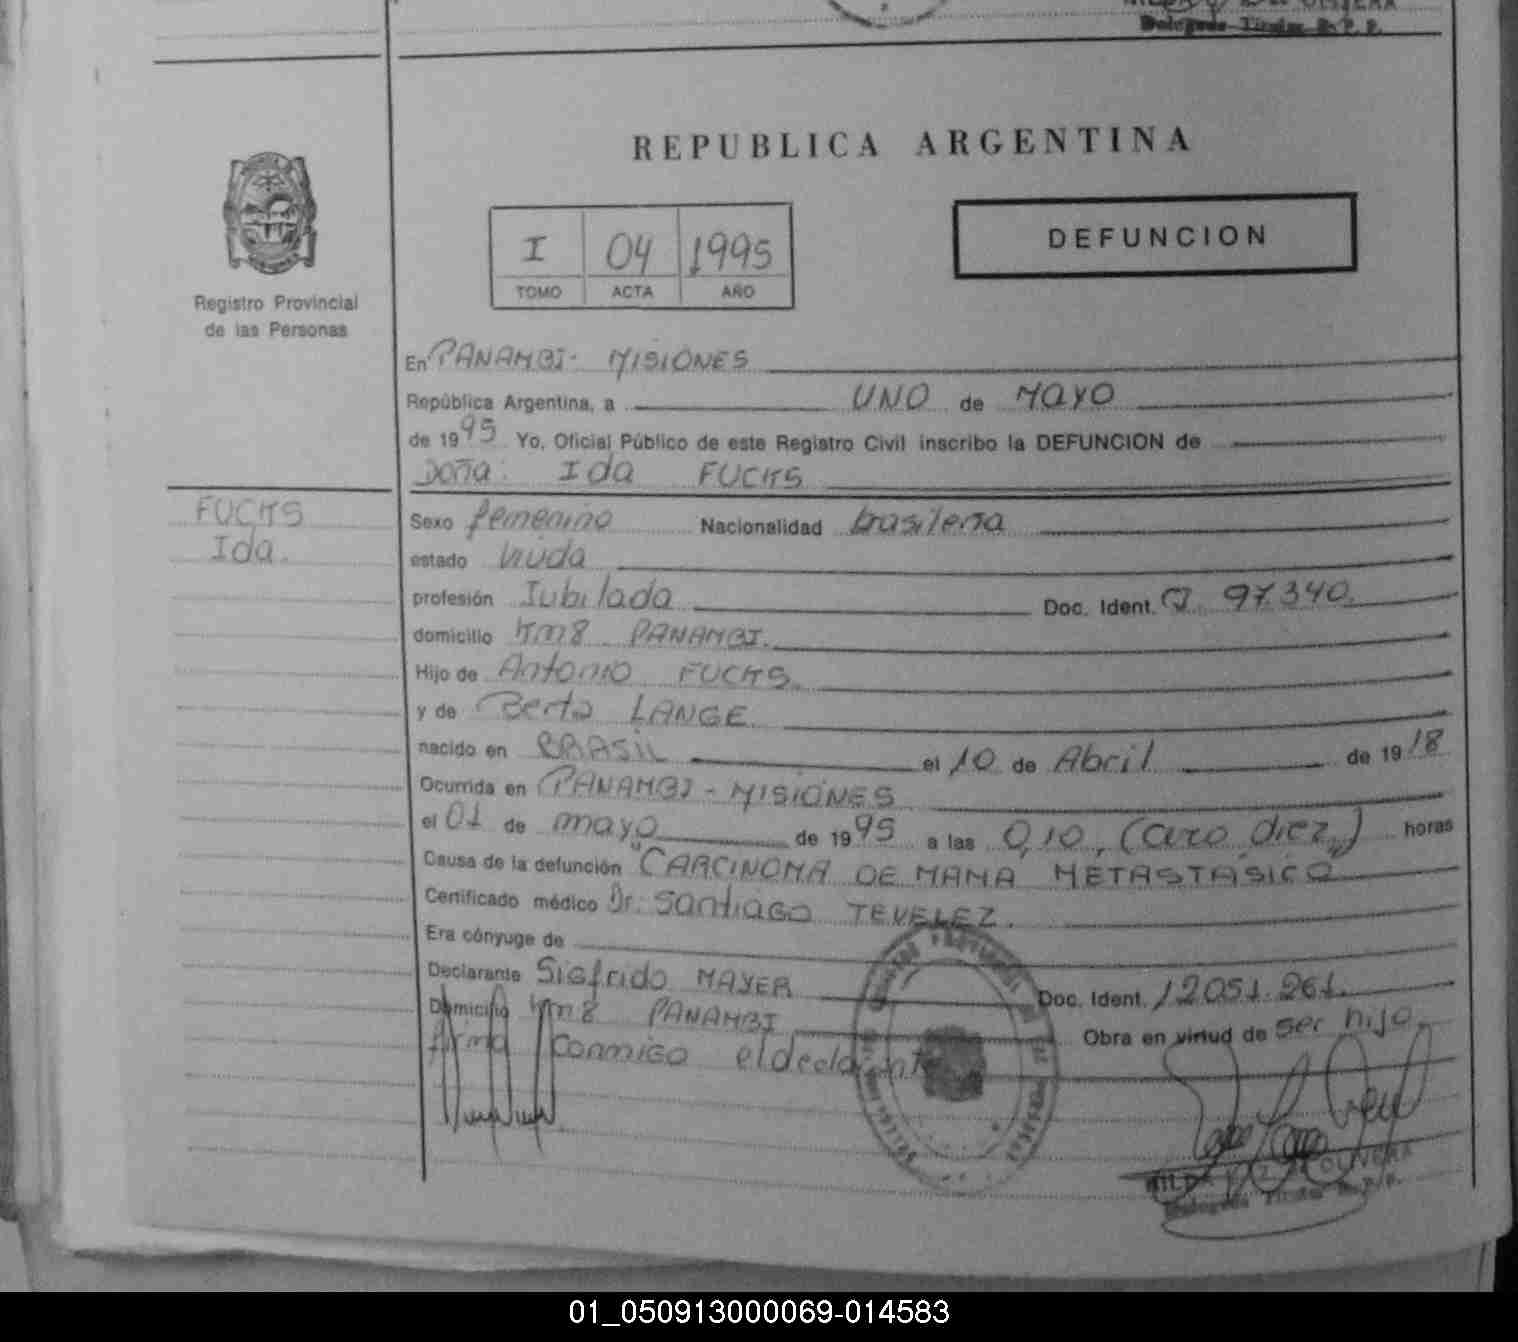 Delegada Titular R.P.P.
REPUBLICA ARGENTINA
I 04 1995
TOMO ACTA AÑO
DEFUNCION
Registro Provincial
de las Personas
En PANAMBI - MISIONES
República Argentina, a UNO de MAYO
de 1995 Yo, Oficial Público de este Registro Civil inscribo la DEFUNCION de
Doña: Ida FUCKS
FUCKS
Ida.
Sexo femenino Nacionalidad brasileña
estado Viuda
profesión Jubilada Doc. Ident. 97.340.
domicilio Km8 PANAMBI.
Hijo de Antonio FUCKS.
y de Berta LANGE.
nacido en BRASIL el 10 de Abril de 1918
Ocurrida en PANAMBI - MISIONES
el 01 de mayo de 1995 a las 0,10, (cero diez) horas
Causa de la defunción "CARCINOMA DE MAMA METASTÁSICO"
Certificado médico Dr. Santiago TEVELEZ.
Era cónyuge de
Declarante Sigfrido MAYER Doc. Ident. 12051.261.
Domicilio Km8 PANAMBI Obra en virtud de ser hijo.
firma conmigo el declarante
OLIVERA
Delegada Titular R.P.P.
01_050913000069-014583